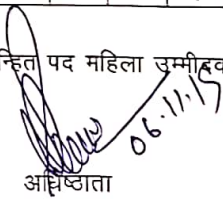 न्हित पद महिला उम्मीदव
06.11.15
अधिष्ठाता